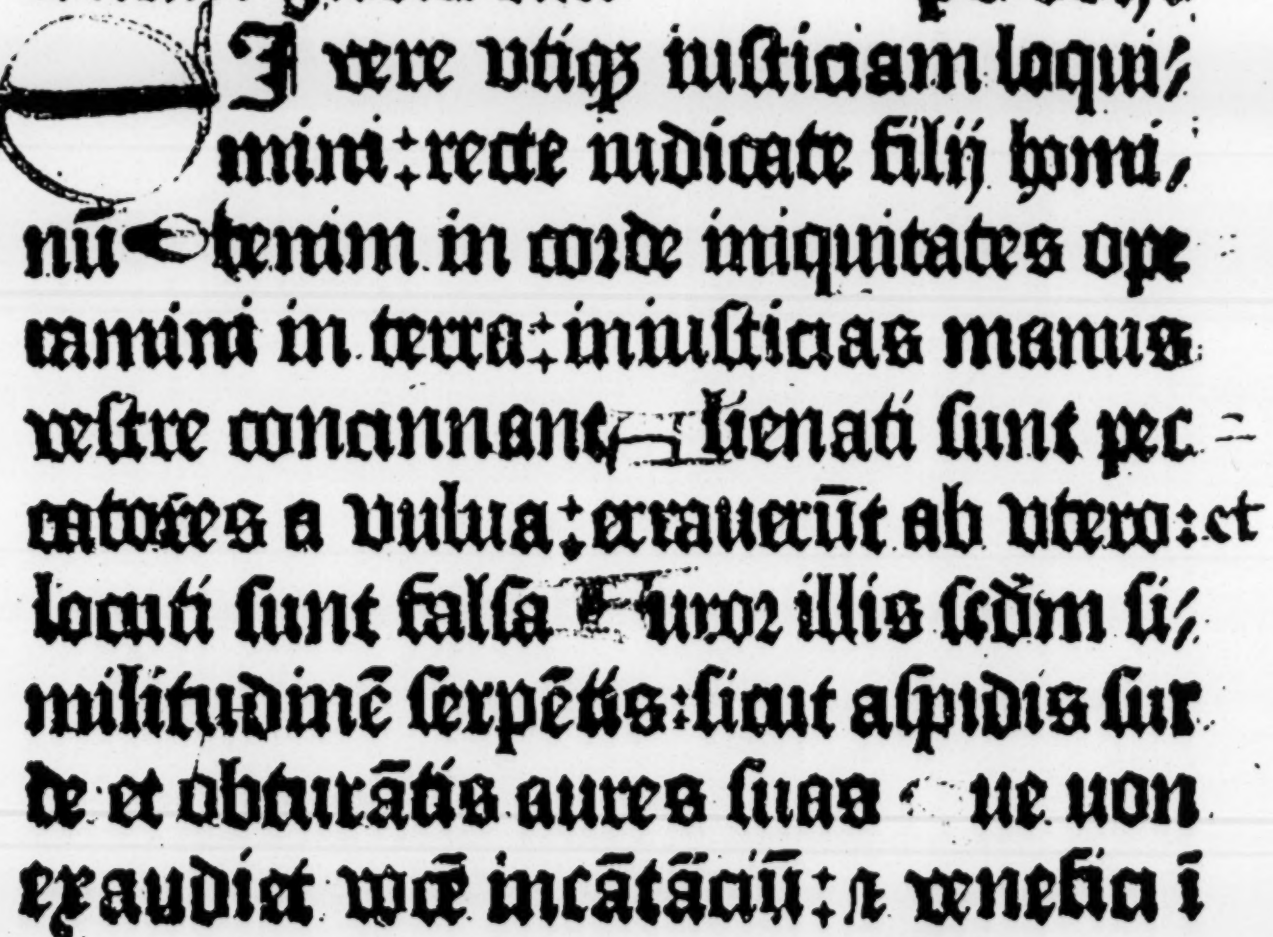 SI vere vtiqꝫ iusticiam loqui/
mini: recte iudicate filij homi/
nū Etenim in corde iniquitates ope
ramini in terra: iniusticias manus
vestre concinnant Alienati sunt pec-
catores a vulua: errauerūt ab vtero: et
locuti sunt falsa Furor illis scd̄m si/
militudinē serpētis: sicut aspidis sur
de et obturātis aures suas ue uon
exaudiet vocē incātāciū: ꞇ venefici ī